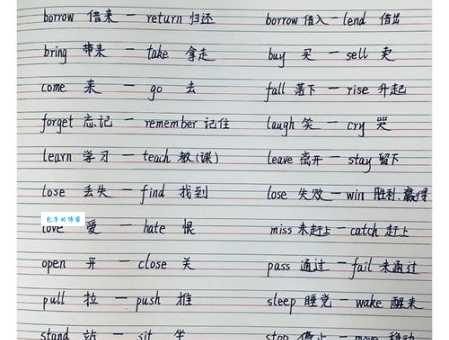 borrow 借来 — return 归还
borrow 借入 — lend 借出
bring 带来 — take 拿走
buy 买 — sell 卖
come 来 — go 去
fall 落下 — rise 升起
forget 忘记 — remember 记住
laugh 笑 — cry 哭
learn 学习 — teach 教(课)
leave 离开 — stay 留下
lose 丢失 — find 找到
lose 失败 — win 胜利,赢得
love 爱 — hate 恨
miss 未赶上 — catch 赶上
open 开 — close 关
pass 通过 — fail 未通过
pull 拉 — push 推
sleep 睡觉 — wake 醒来
stand 站 — sit 坐
stop 停止 — move 移动